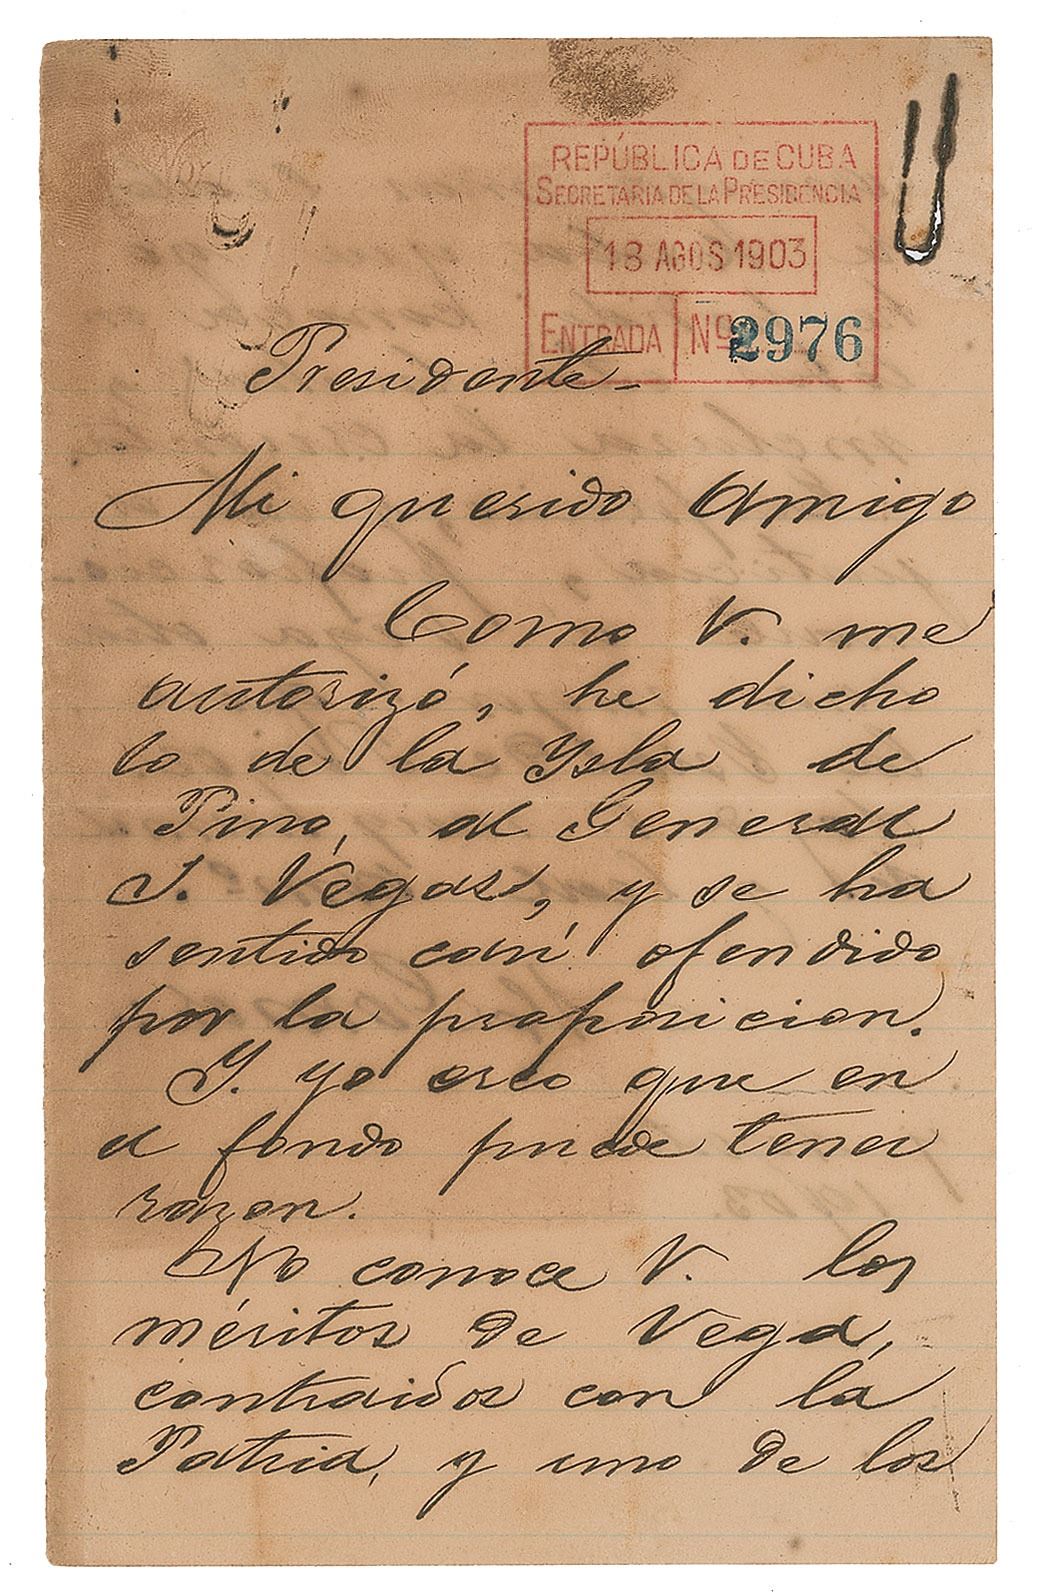 REPÚBLICA DE CUBA
SECRETARIA DE LA PRESIDENCIA
18 AGOS 1903
ENTRADA Nº 2976
Presidente-
Mi querido amigo
Como V. me
autorizó, he dicho
lo de la Ysla de
Pino, al General
J. Vegas, y se ha
sentido casi ofendido
por la proposicion.
Y. yo creo que en
el fondo puede tener
razon.
No conoce V. los
méritos de Vega,
contraidos con la
Patria, y uno de los